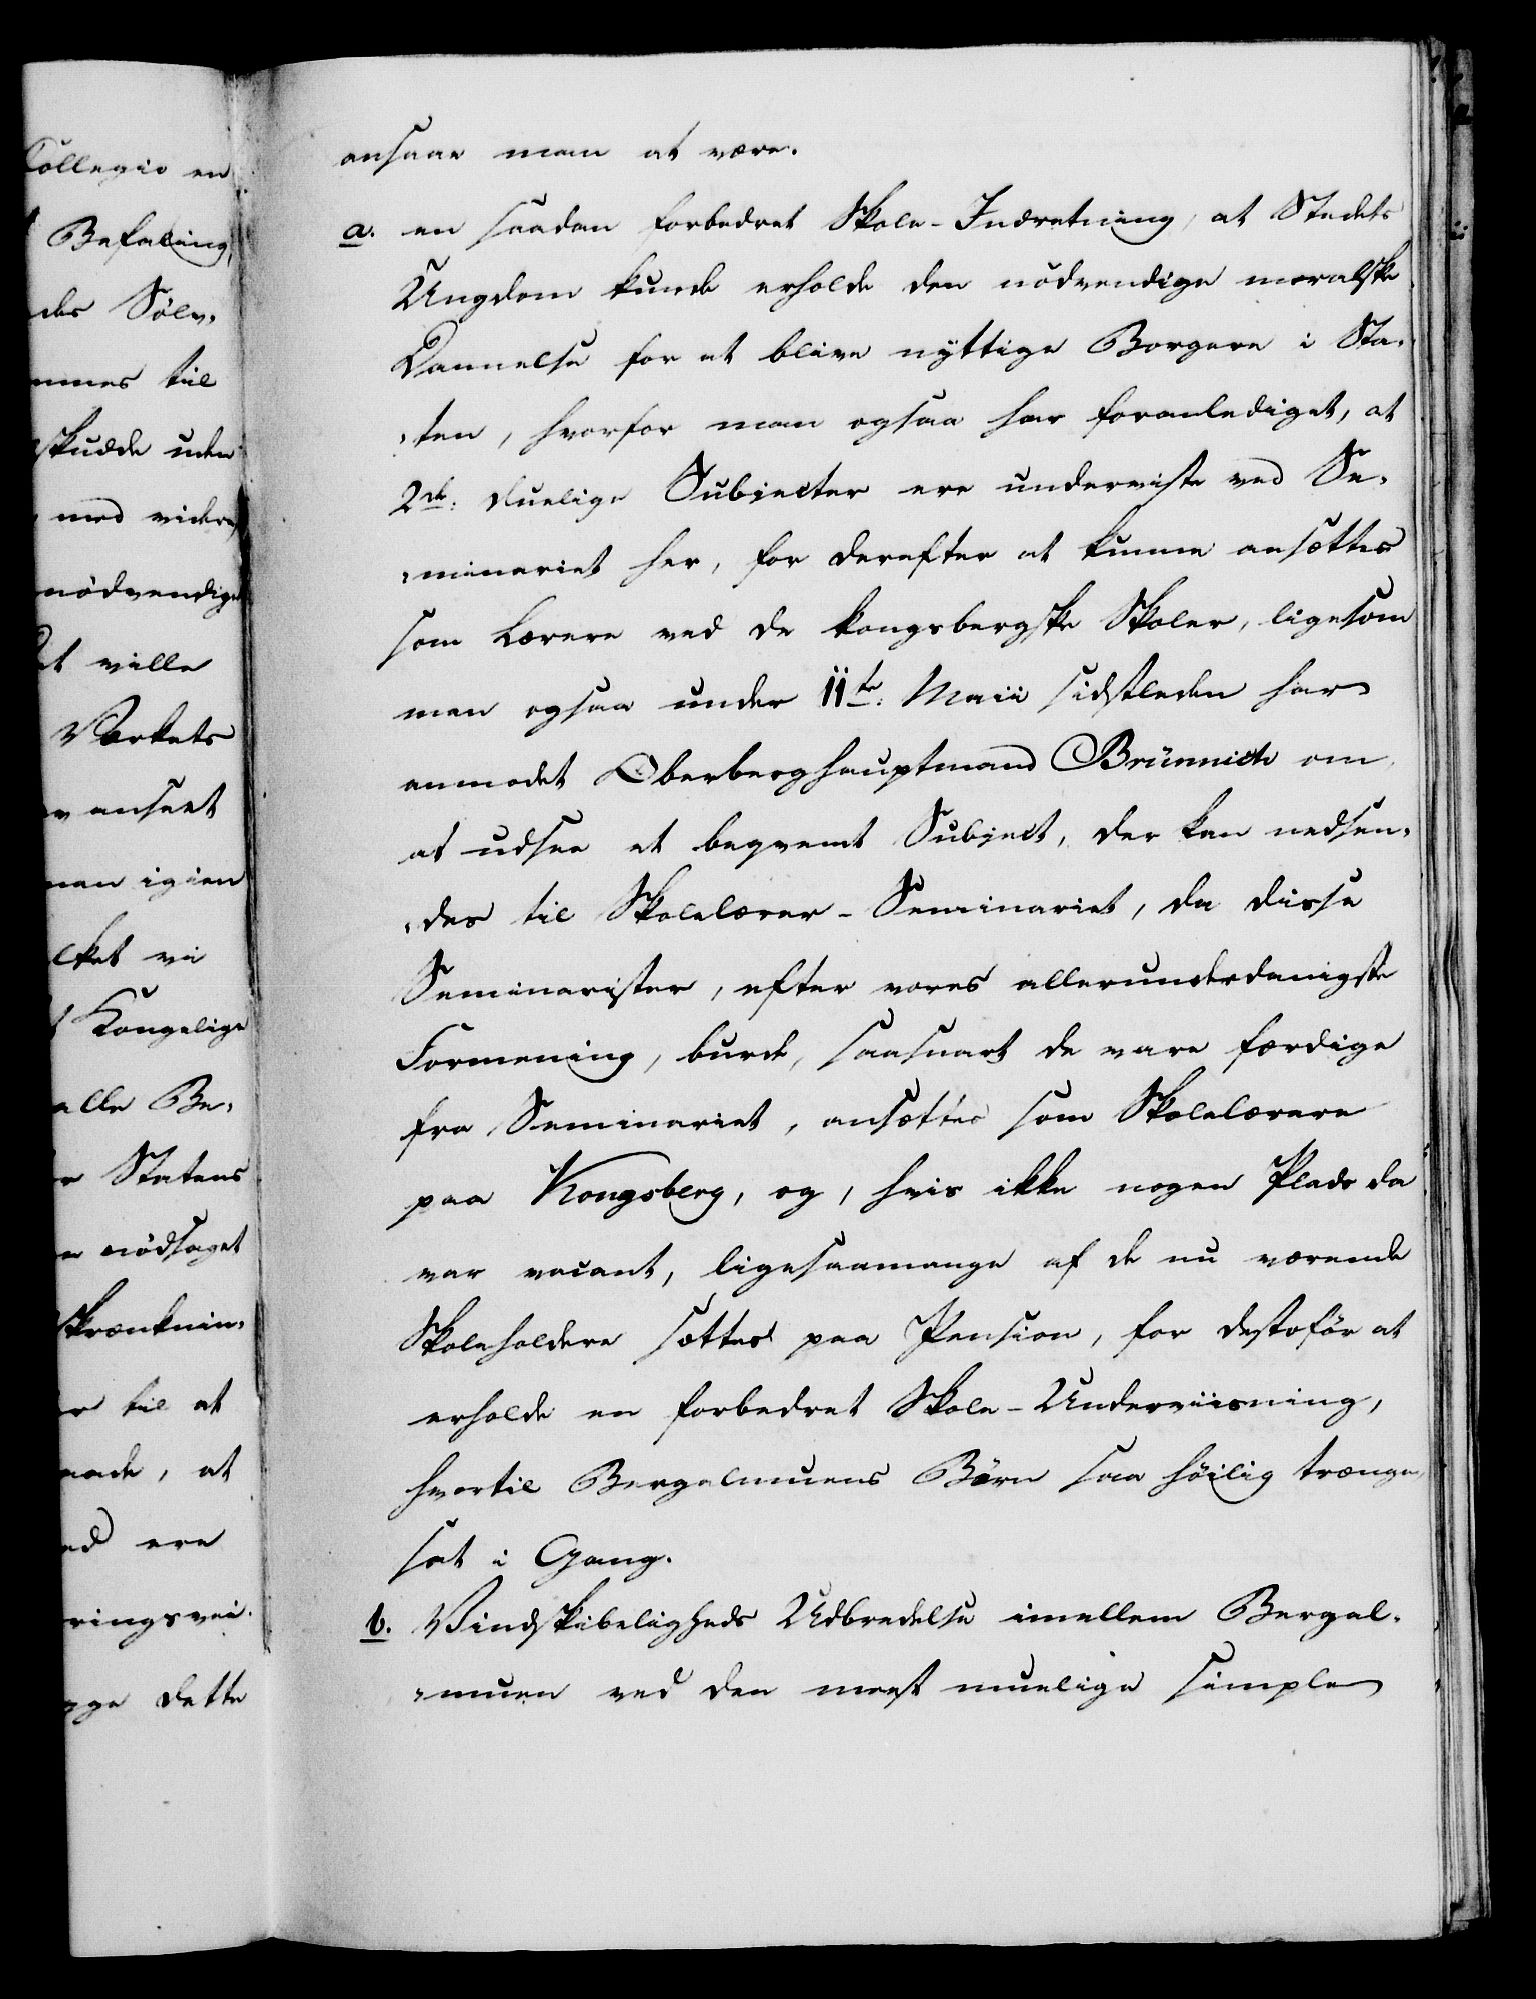 Collegio en
Befaling,
des Sølv-
mmes til
skudde uden
med videre
nödvendige
et ville
Værkets
anseet
man igien
lket vi
Kongelige
alle Be-
Statens
nödsaget
skrænknin-
til at
aade, at
ed ere
ringsvei-
gge dette
ansaae man at være.
a. en saadan forbedret Skole-Indretning, at Stedets
Ungdom kunde erholde den nödvendige moralske
Dannelse for at blive nÿttige Borgere i Sta-
-ten, hvorfor man ogsaa har foranlediget, at
2de: duelige Subjecter ere underviste ved Se-
-minariet her, for derefter at kunne ansættes
som Lærere ved de kongsbergske Skoler, ligesom
man ogsaa under 11te: Maii sidstleden har
anmodet Oberberghauptmand Brünnich om
at udsee et beqvemt Subject, der kan nedsen-
-des til Skolelærer-Seminariet, da disse
Seminarister, efter vores allerunderdanigste
Formening, burde, saasnart de vare færdige
fra Seminariet, ansættes som Skolelærere
paa Kongsberg, og, hvis ikke nogen Plads da
var vacant, ligesaamange af de nu værende
Skoleholdere sættes paa Pension, for destoför at
erholde en forbedret Skole-Underviisning,
hvortil Bergalmuens Börn saa höilig trænge,
sat i Gang.
b. Vindskibeligheds Udbredelse imellem Bergal-
-muen ved den meest muelige simple